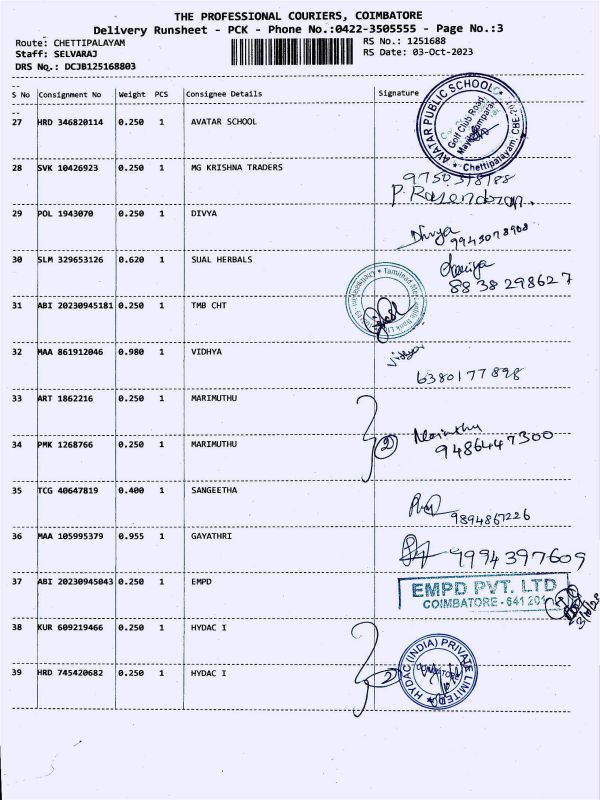 THE PROFESSIONAL COURIERS, COIMBATORE
Delivery Runsheet - PCK - Phone No.:0422-3505555 - Page No.:3
Route: CHETTIPALAYAM RS No.: 1251688
Staff: SELVARAJ RS Date: 03-Oct-2023
DRS No.: DCJB125168803
S No Consignment No Weight PCS Consignee Details Signature
AVATAR PUBLIC SCHOOL
Golf Club Road,
Chettipalayam, CBE-
27 HRD 346820114 0.250 1 AVATAR SCHOOL
28 SVK 10426923 0.250 1 MG KRISHNA TRADERS
P. Rasendran.
29 POL 1943070 0.250 1 DIVYA
Divya
9945078908
30 SLM 329653126 0.620 1 SUAL HERBALS
8838298627
Tamilnad Mercantile Bank Ltd
31 ABI 20230945181 0.250 1 TMB CHT
32 MAA 861912046 0.980 1 VIDHYA
6380177898
33 ART 1862216 0.250 1 MARIMUTHU
34 PMK 1268766 0.250 1 MARIMUTHU
2 Marimuthu
9486447300
35 TCG 40647819 0.400 1 SANGEETHA
9894867226
36 MAA 105995379 0.955 1 GAYATHRI
9994397609
37 ABI 20230945043 0.250 1 EMPD
EMPD PVT. LTD
COIMBATORE - 641 201
38 KUR 609219466 0.250 1 HYDAC I
39 HRD 745420682 0.250 1 HYDAC I
2
HYDAC (INDIA) PRIVATE LIMITED
COIMBATORE